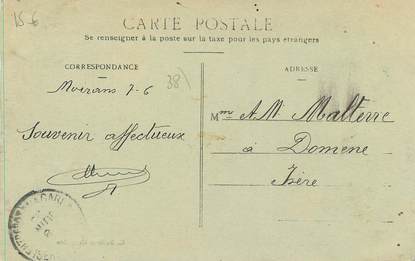 15-6
CARTE POSTALE
Se renseigner à la poste sur la taxe pour les pays étrangers
CORRESPONDANCE
ADRESSE
Moirans 7-6
38
Souvenir affectueux
Mme A M. Malterre
à
Domene
Isère